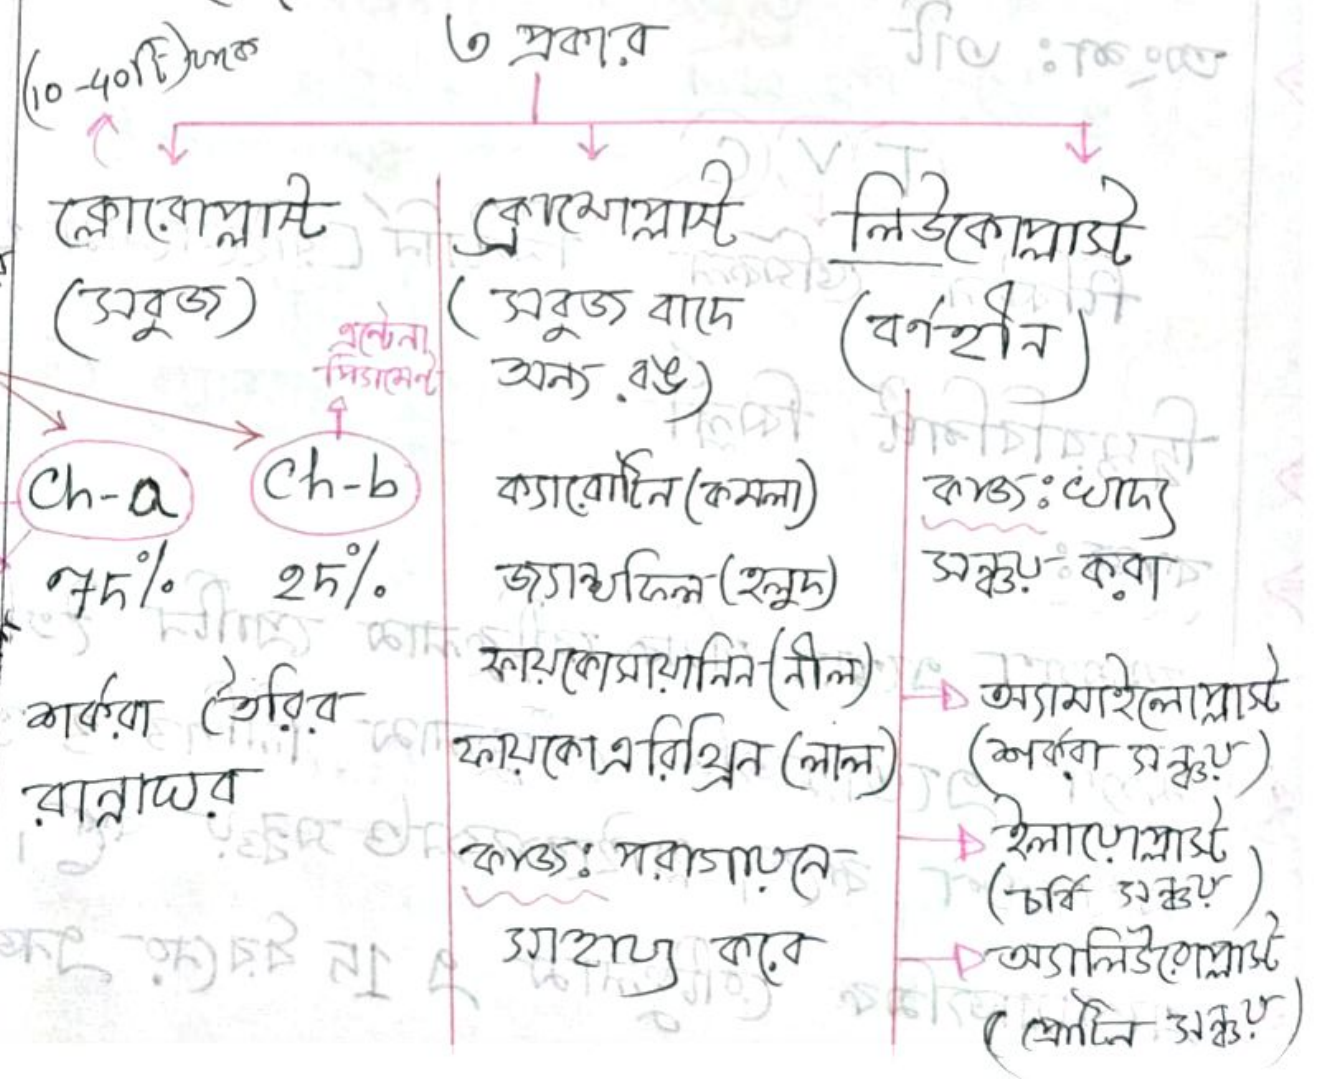 ৩ প্রকার
(10-40টি) থাকে
ক্লোরোপ্লাস্ট
(সবুজ)
এন্টেনা
পিগমেন্ট
Ch-a
Ch-b
৭৫%
২৫%
শর্করা তৈরির
রান্নাঘর
ক্রোমোপ্লাস্ট
( সবুজ বাদে
অন্য রঙ)
ক্যারোটিন (কমলা)
জ্যান্থফিল (হলুদ)
ফায়কোসায়ানিন (নীল)
ফায়কোএরিথ্রিন (লাল)
কাজ: পরাগায়নে
সাহায্য করে
লিউকোপ্লাস্ট
(বর্ণহীন)
কাজ: খাদ্য
সঞ্চয় করা
অ্যামাইলোপ্লাস্ট
(শর্করা সঞ্চয়)
ইলায়োপ্লাস্ট
(চর্বি সঞ্চয়)
অ্যালিউরোপ্লাস্ট
(প্রোটিন সঞ্চয়)